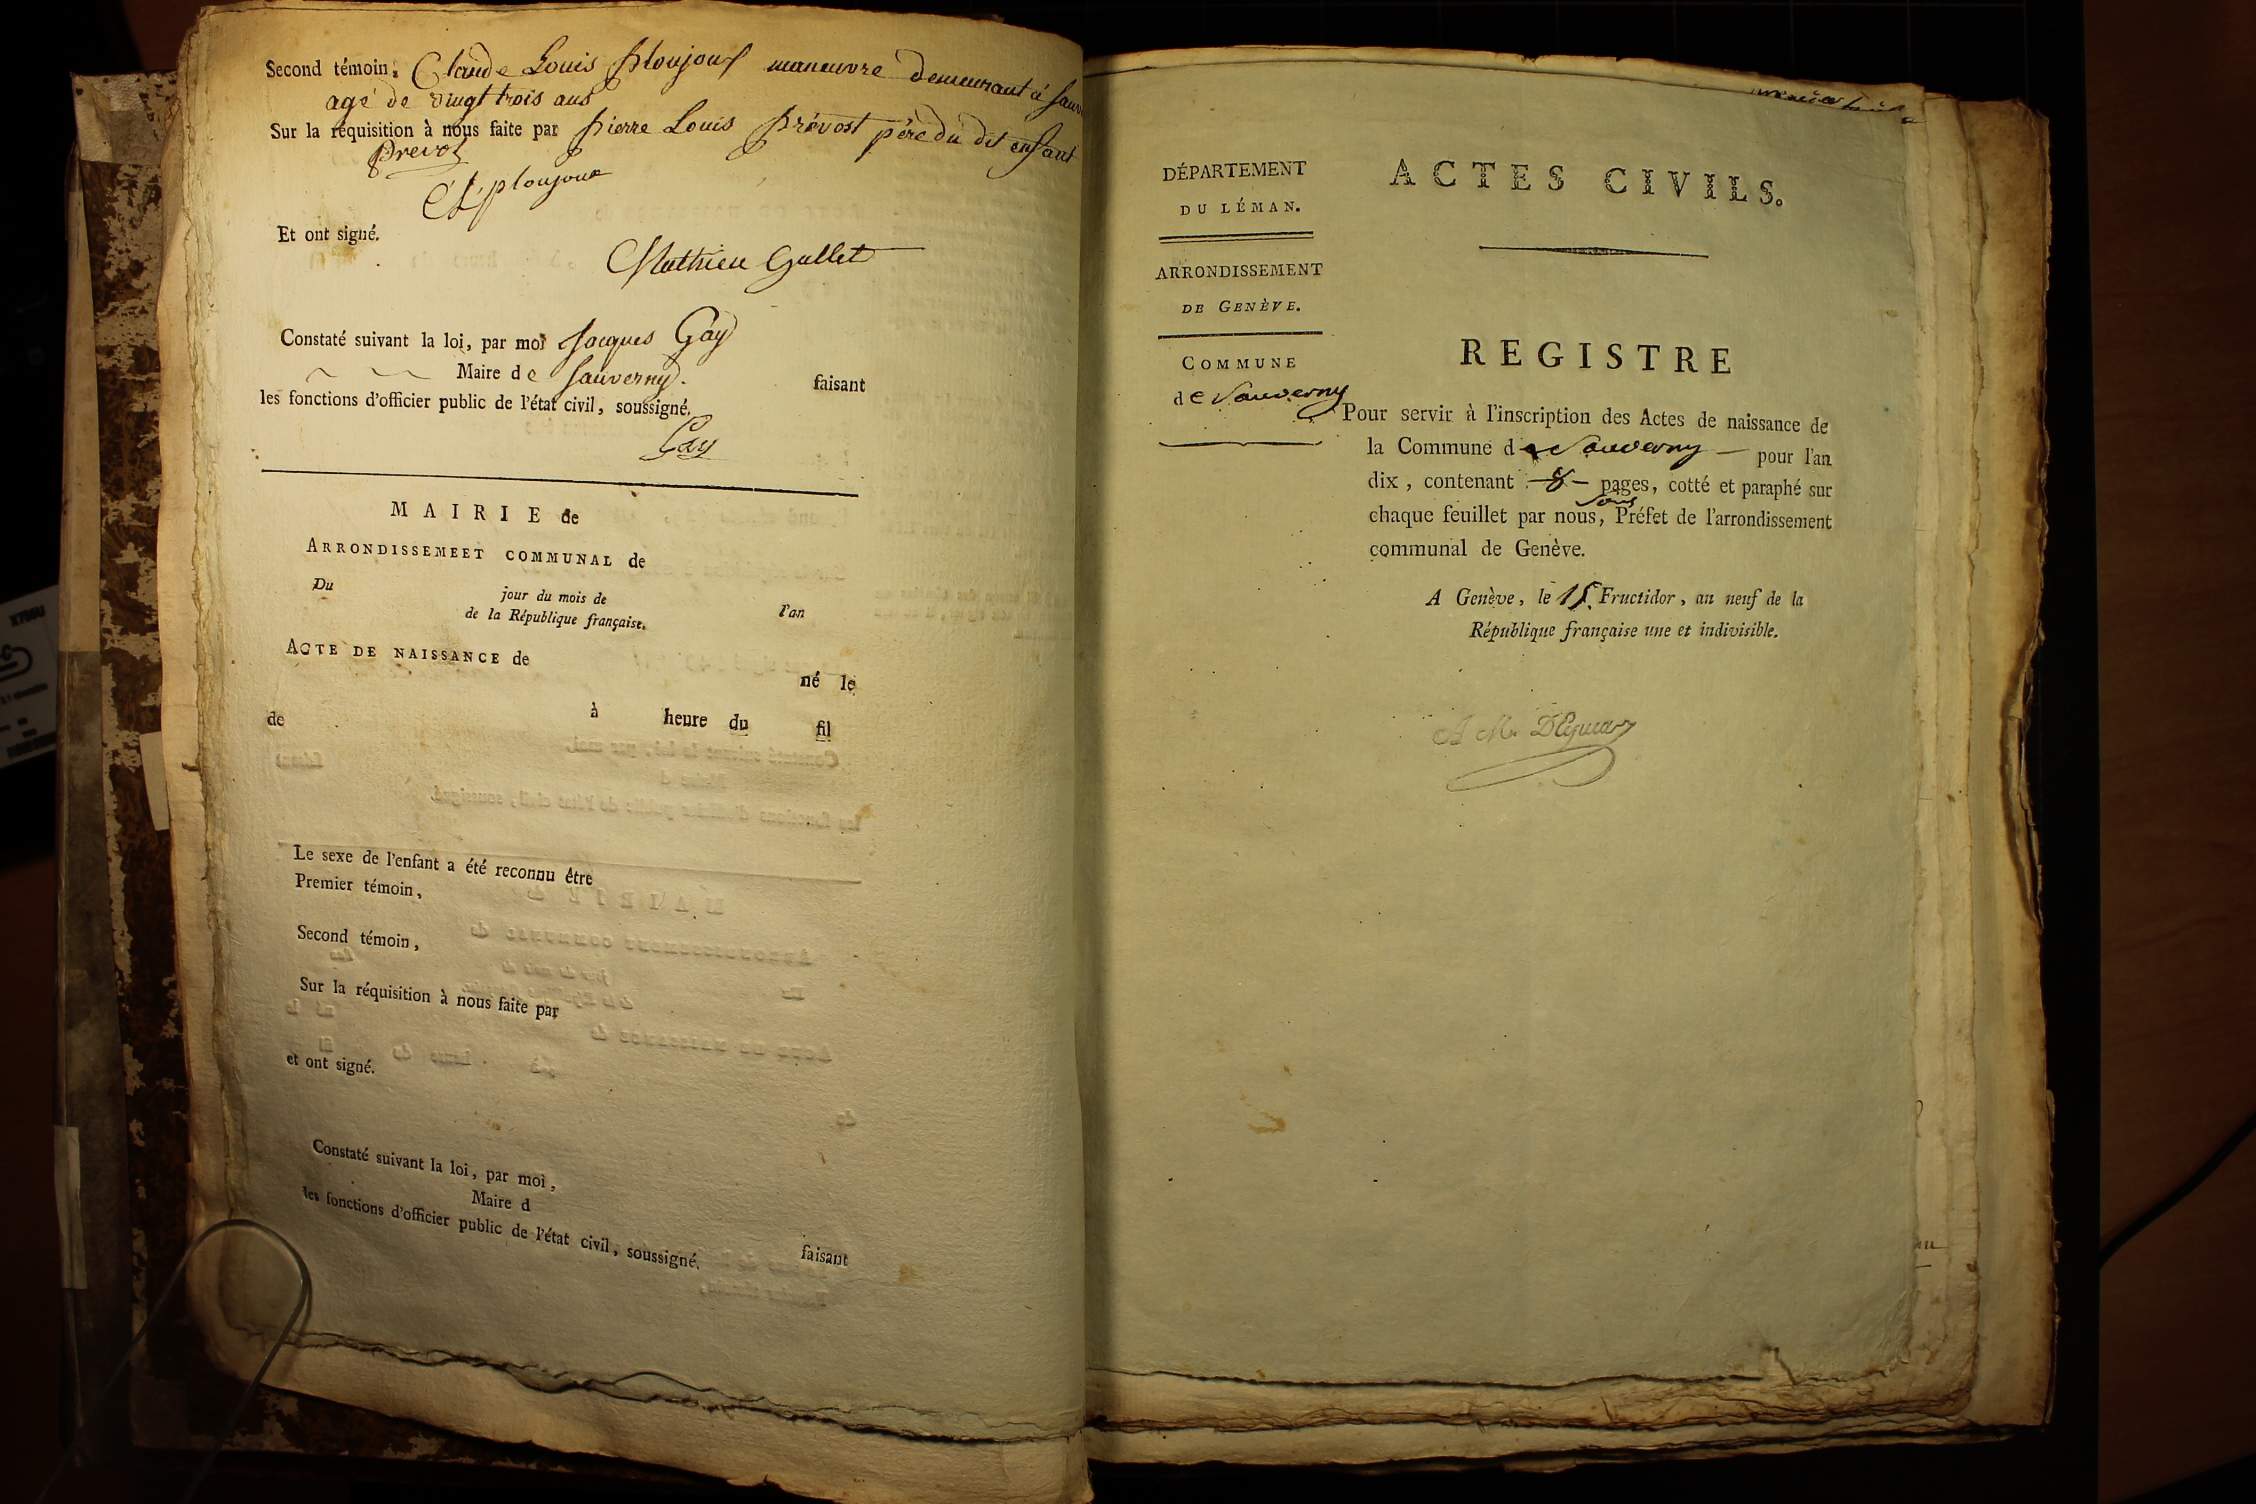 Second témoin, Claude Louis Ploujoux manœuvre demeurant à Sauv
agé de vingt trois ans
Sur la réquisition à nous faite par Pierre Louis Prévost père du dit enfant
Prevot
C L ploujoux
Et ont signé.
Mathieu Gallet
Constaté suivant la loi, par moi Jacques Gay
Maire de Sauverny. faisant
les fonctions d'officier public de l'état civil, soussigné.
Gay
MAIRIE de
ARRONDISSEMEET COMMUNAL de
Du jour du mois de l'an
de la République française.
ACTE DE NAISSANCE de
né le
de à heure du fil
Le sexe de l'enfant a été reconnu être
Premier témoin,
Second témoin,
Sur la réquisition à nous faite par
et ont signé.
Constaté suivant la loi, par moi,
Maire d faisant
les fonctions d'officier public de l'état civil, soussigné.
DÉPARTEMENT
DU LÉMAN.
ARRONDISSEMENT
DE GENÈVE.
COMMUNE
de Sauverny
ACTES CIVILS.
REGISTRE
Pour servir à l'inscription des Actes de naissance de
la Commune de Sauverny — pour l'an
dix, contenant —8— pages, cotté et paraphé sur
chaque feuillet par nous, sous Préfet de l'arrondissement
communal de Genève.
A Genève, le 15 Fructidor, an neuf de la
République française une et indivisible.